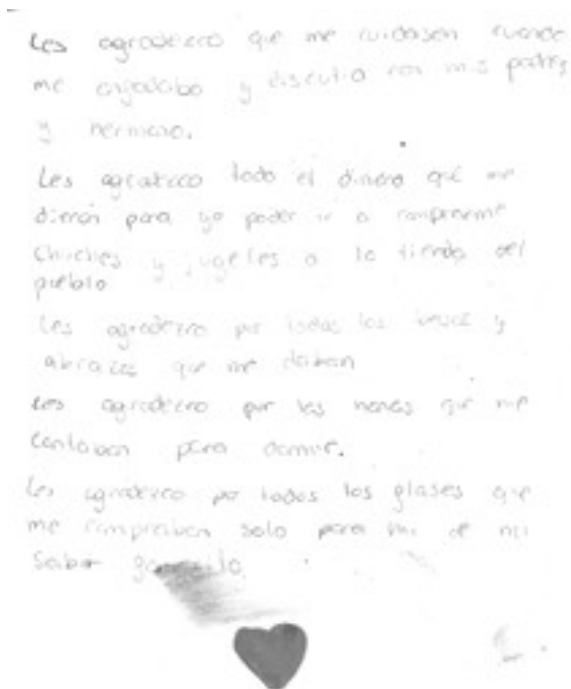 Les agradezco que me cuidasen cuando
me enfadaba y discutia con mis padres
y hermano.
Les agradezco todo el dinero que me
dieron para yo poder ir a comprarme
Chuches y jugetes a la tienda del
pueblo
Les agradezco por todos los besos y
abrazos que me daban
Les agradezco por las nanas que me
contaban para dormir.
Les agradezco por todos los glases que
me compraban solo para mi de mi
Sabor